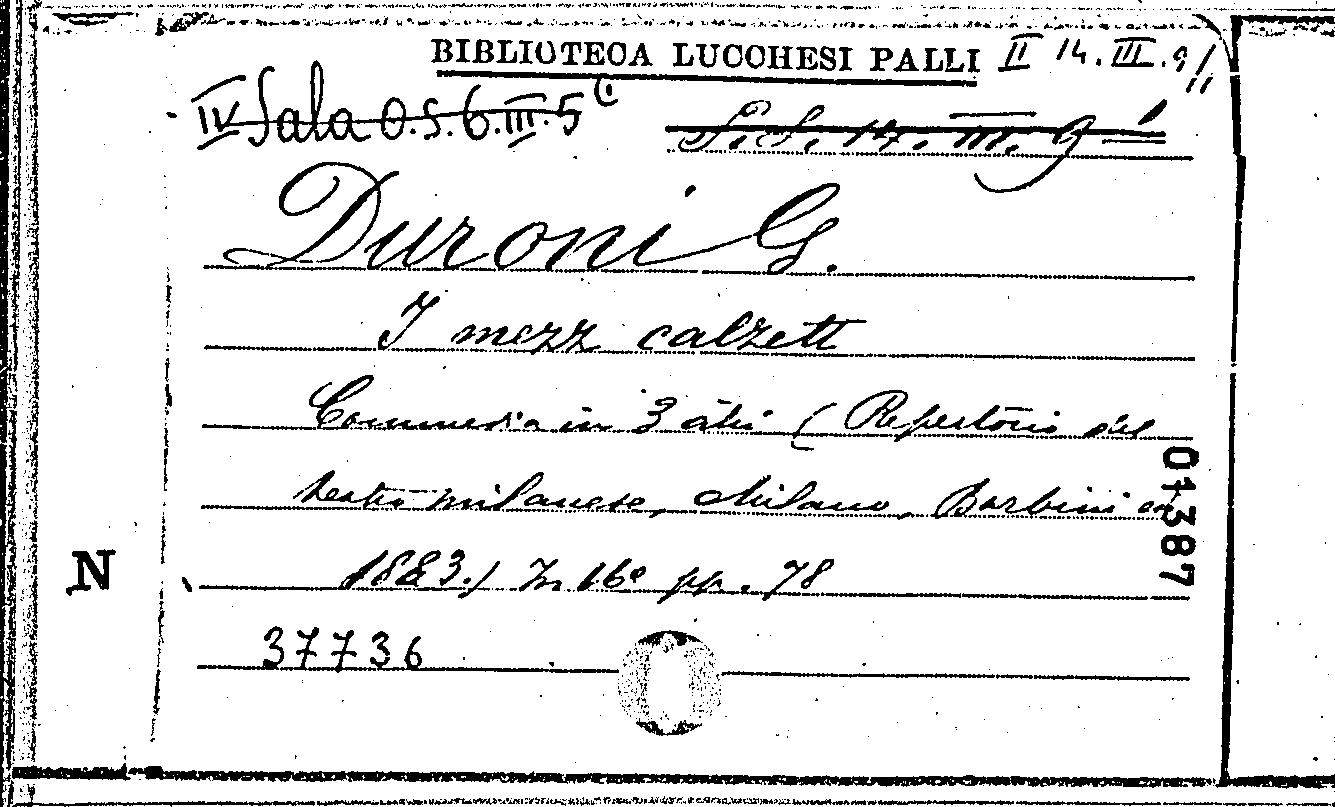 BIBLIOTECA LUCCHESI PALLI II 14.III.9/
IV Sala O.S.6.III.5 S.S. 14. III. 9
Duroni G.
I mezz calzett
Commedia in 3 atti (Repertorio del
teatro milanese, Milano, Barbini ed
1883.) In 16° pp. 78
37736
N
01387